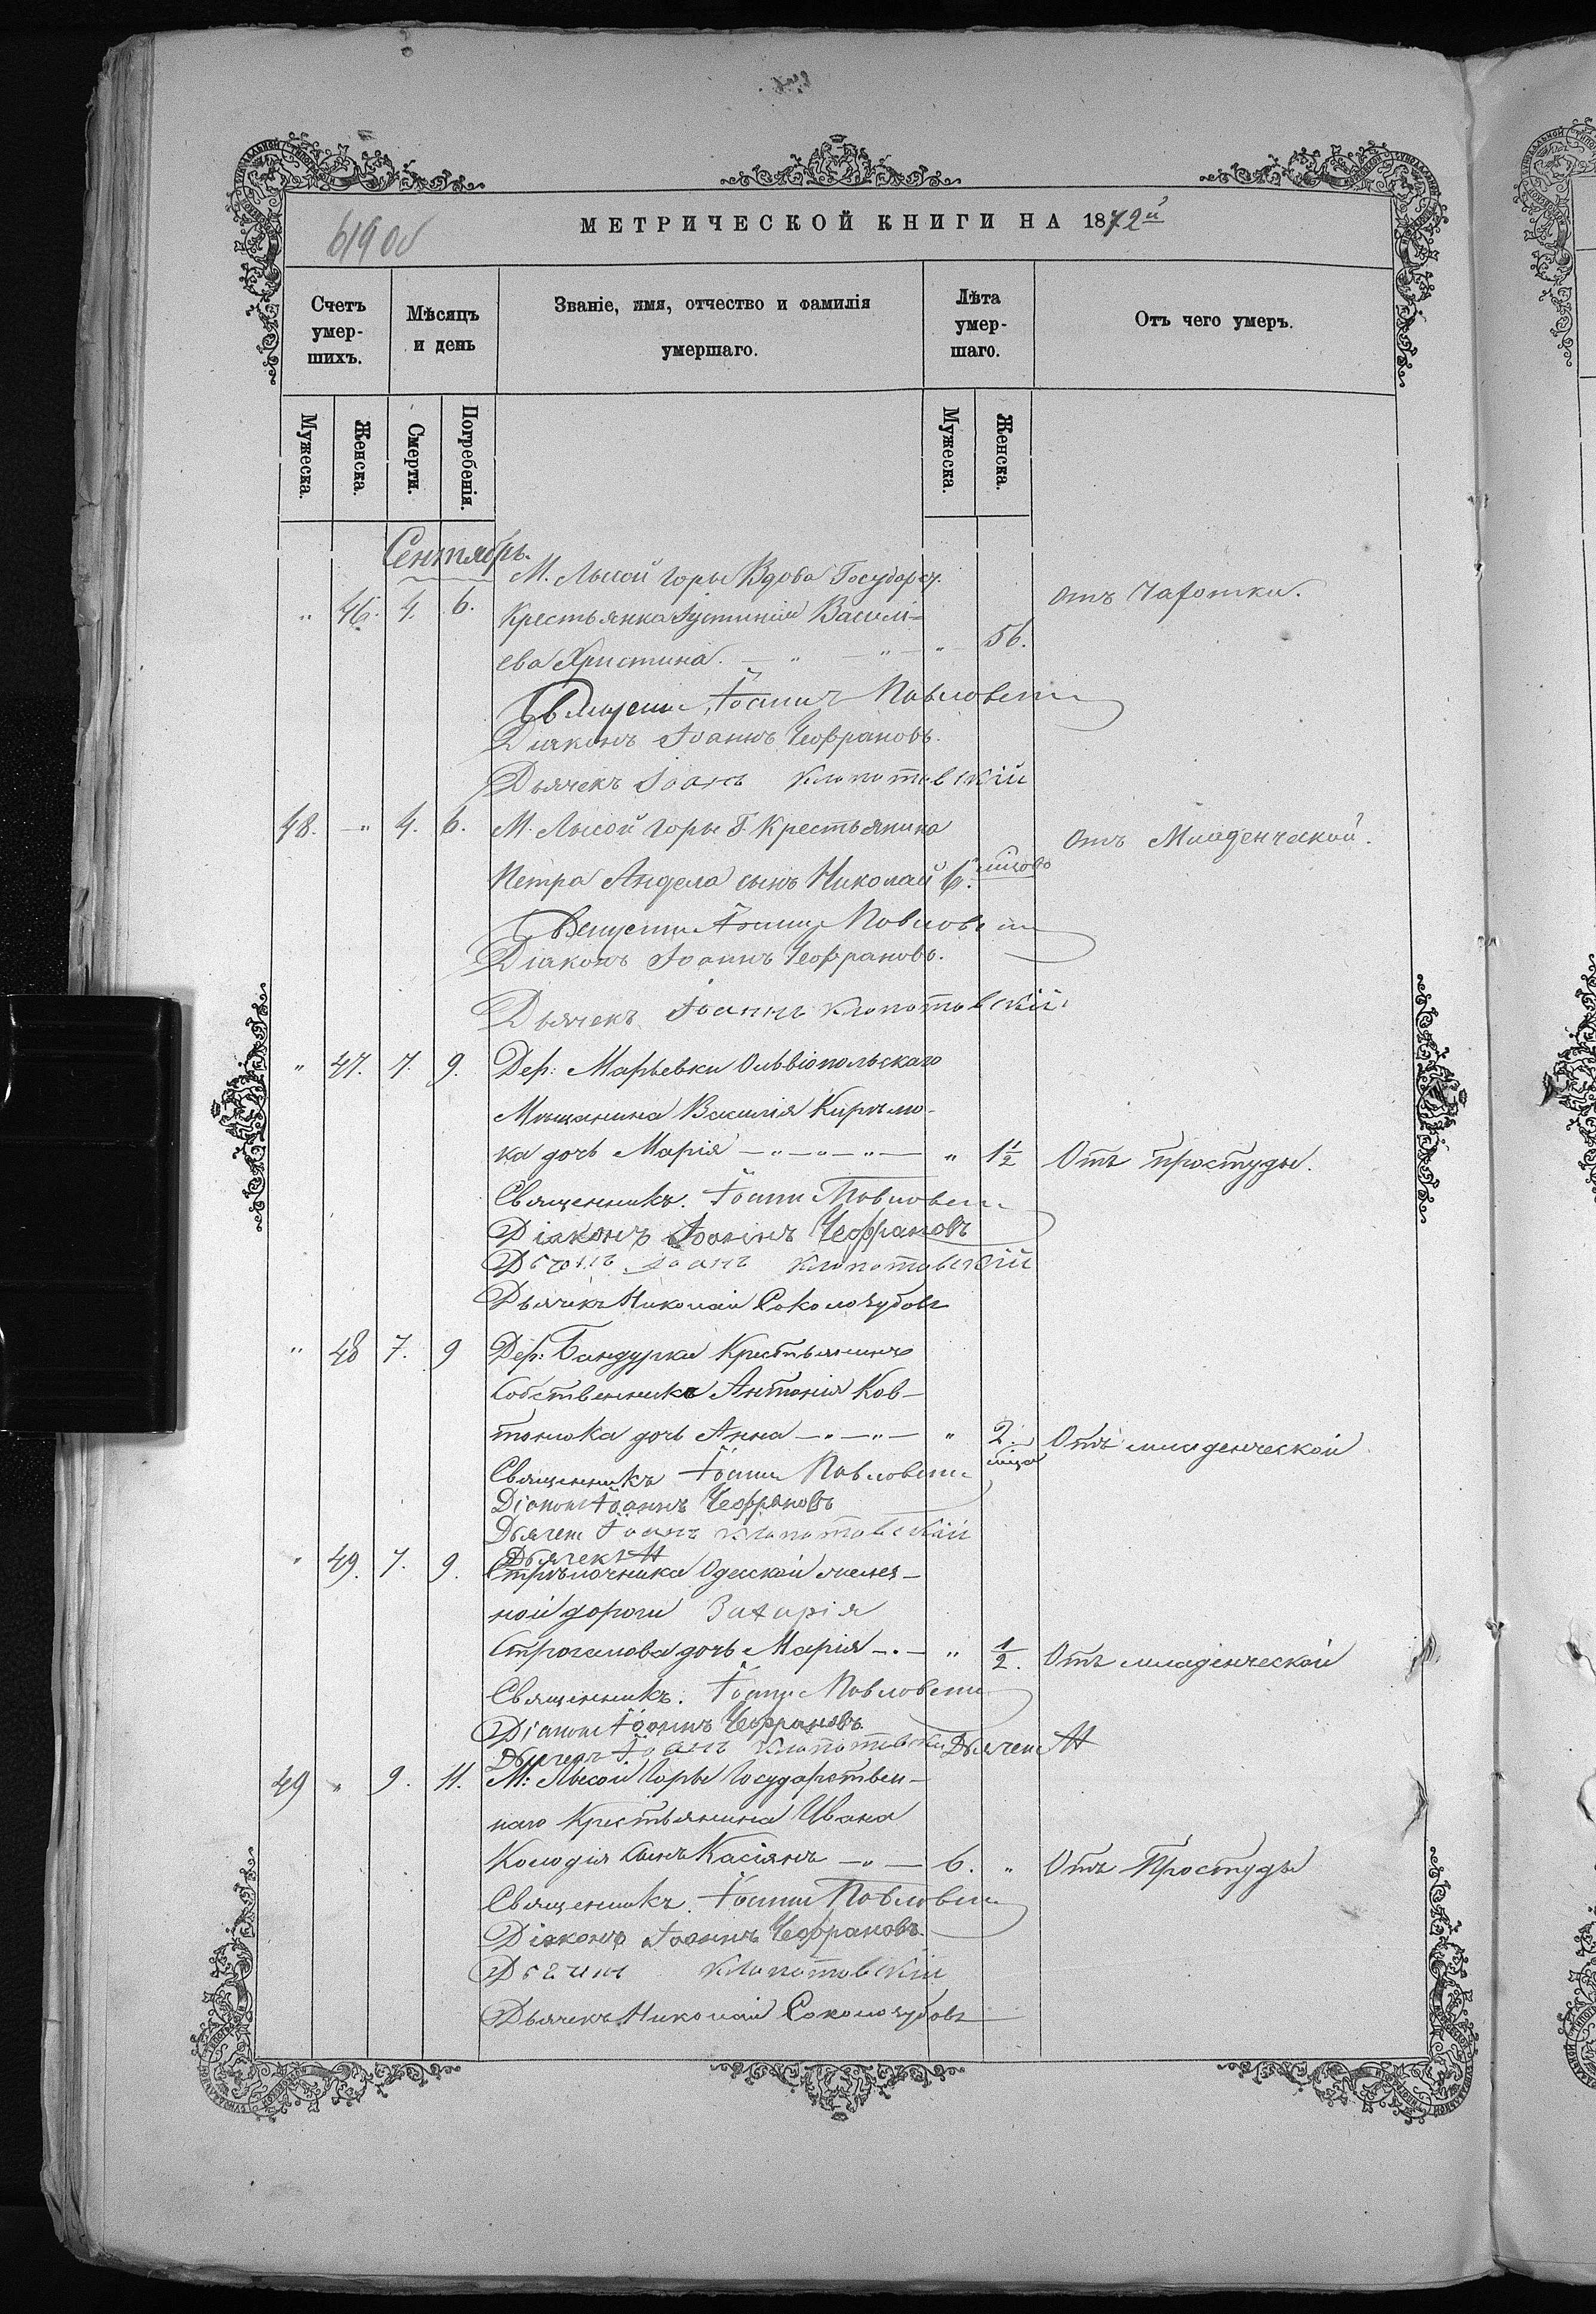 619 об
МЕТРИЧЕСКОЙ КНИГИ НА 1872й
Счетъ умер-шихъ.
Мѣсяцъ и день
Званіе, имя, отчество и фамилія умершаго.
Лѣта умер-шаго.
Отъ чего умеръ.
Мужеска. Женска. Смерти. Погребенія. Мужеска. Женска.
Сентябрь.
М. Лысой Горы Вдова Государст.
" 46. 4. 6. Крестьянка Іустинія Василі- отъ Чахотки.
ева Христина. — " — " — " 56.
Іоаннъ Павловскій
Діаконъ Іоаннъ Чефрановъ.
Дьячекъ Іоанъ Клопотовскій
48. — " 4. 6. М. Лысой Горы Г. Крестьянина отъ Младенческой.
Петра Ангела сынъ Николай 6.
Іоаннъ Павловскій
Діаконъ Іоаннъ Чефрановъ.
Дьячекъ Іоаннъ Клопотовскій
" 47. 7. 9. Дер: Марьевки Ольвіопольскаго
Мѣщанина Василія Кирѣлю-
ка дочь Марія — " — " — " — " 1 1/2 Отъ простуды.
Священникъ. Іоаннъ Павловскій
Діаконъ Іоаннъ Чефрановъ
Іоанъ Клопотовскій
Дьячекъ Николай Сокологубовъ
" 48 7. 9 Дер: Бандурки Крестьянина
Собственника Антонія Ков-
тонюка дочь Анна — " — " — " 2. Отъ младенческой
Священникъ Іоаннъ Павловскій
Діаконъ Іоаннъ Чефрановъ
Дьячекъ Іоанъ Клопотовскій
Дьячекъ Н
" 49. 7. 9. Стрѣлочника Одесской желез-
ной дороги Захарія
Строганова дочь Марія — " — " 1/2. Отъ младенческой
Священникъ. Іоаннъ Павловскій
Діаконъ Іоаннъ Чефрановъ
Дьячекъ Іоанъ Клопотовскій Дьячекъ Н
49 " 9. 11. М: Лысой Горы Государствен-
наго Крестьянина Ивана
Колодія Сынъ Касіянъ — " — 6. " Отъ Простуды
Священникъ. Іоаннъ Павловскій
Діаконъ Іоаннъ Чефрановъ.
Клопотовскій
Дьячекъ Николай Сокологубовъ